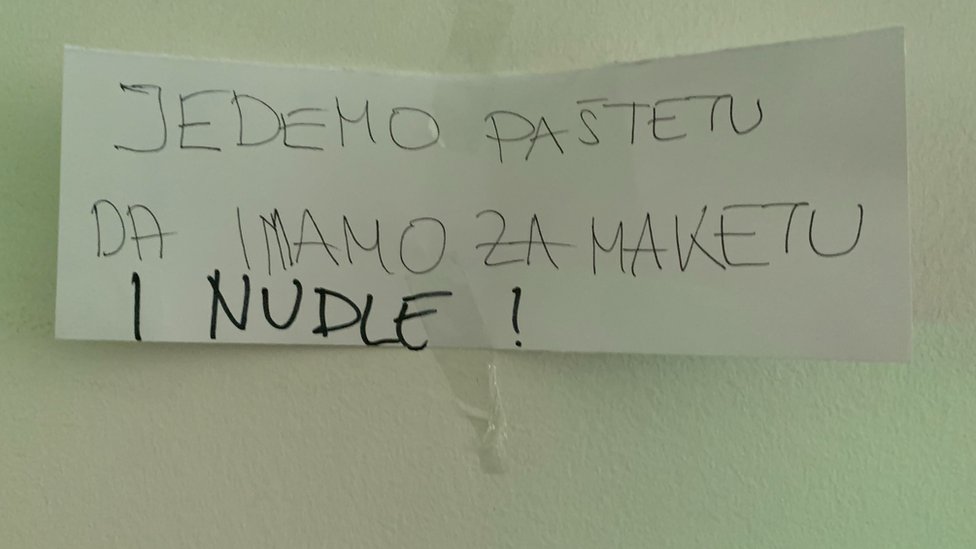 JEDEMO PAŠTETU
DA IMAMO ZA MAKETU
I NUDLE !